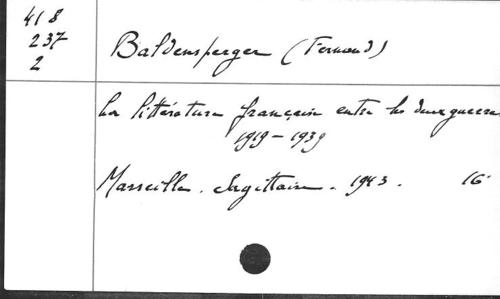 418
237
2
Baldensperger (Fernand)
La littérature française entre les deux guerres
1919 - 1939
Marseille. Sagittaire. 1943. 16°